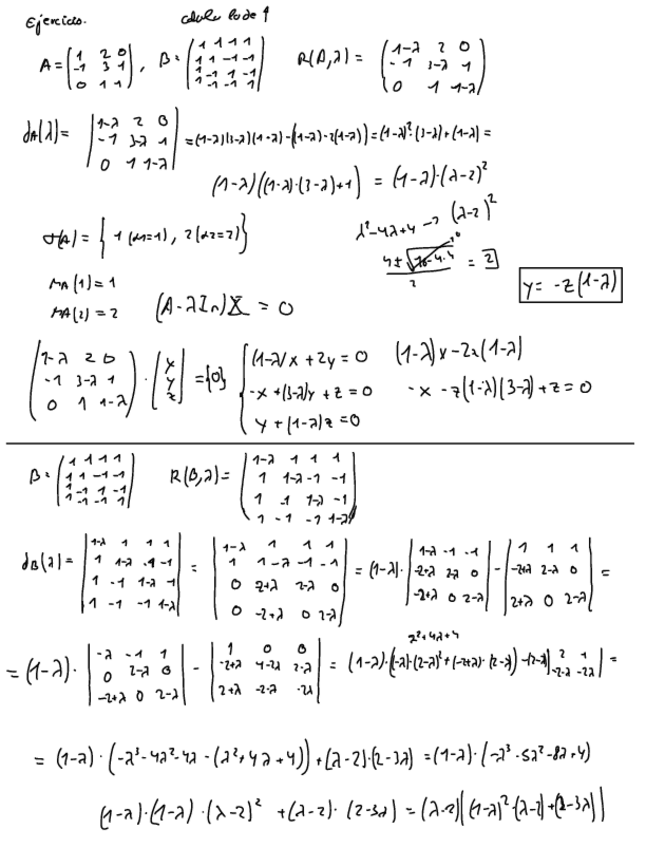 Ejercicio. calcula lo de 9
A = (1 2 0 / -1 3 1 / 0 1 1), B = (1 1 1 1 / 1 1 -1 -1 / 1 -1 1 -1 / 1 -1 -1 1) R(A,λ) = (1-λ 2 0 / -1 3-λ 1 / 0 1 1-λ)
dA(λ) = |1-λ 2 0 / -1 3-λ 1 / 0 1 1-λ| = (1-λ)(3-λ)(1-λ) - (1-λ) - 2(1-λ)) = (1-λ)²·(3-λ) + (1-λ) =
(1-λ)((1-λ)·(3-λ)+1) = (1-λ)·(λ-2)²
σ(A) = {1 (α1=1), 2 (α2=2)} λ²-4λ+4 → (λ-2)²
4±√16-4·4 / 2 = 2
MA(1) = 1
MA(2) = 2 (A-λIn)X = 0 y = -z(1-λ)
(1-λ 2 0 / -1 3-λ 1 / 0 1 1-λ) · (x / y / z) = {0} {(1-λ)x + 2y = 0 (1-λ)x - 2z(1-λ)
-x + (3-λ)y + z = 0 -x - z(1-λ)(3-λ) + z = 0
y + (1-λ)z = 0
B = (1 1 1 1 / 1 1 -1 -1 / 1 -1 1 -1 / 1 -1 -1 1) R(B,λ) = (1-λ 1 1 1 / 1 1-λ -1 -1 / 1 -1 1-λ -1 / 1 -1 -1 1-λ)
dB(λ) = |1-λ 1 1 1 / 1 1-λ -1 -1 / 1 -1 1-λ -1 / 1 -1 -1 1-λ| = |1-λ 1 1 1 / 1 1-λ -1 -1 / 0 -2+λ 2-λ 0 / 0 -2+λ 0 2-λ| = (1-λ)·|1-λ -1 -1 / -2+λ 2-λ 0 / -2+λ 0 2-λ| - |1 1 1 / -2+λ 2-λ 0 / 2+λ 0 2-λ| =
λ²+4λ+4
= (1-λ)·|-λ -1 1 / 0 2-λ 0 / -2+λ 0 2-λ| - |1 0 0 / -2+λ 4-2λ 2-λ / 2+λ -2-λ -2λ| = (1-λ)·(-λ)·(2-λ)² + (-2+λ)·(2-λ)) - (2-λ)|2 1 / -2-λ -2λ| =
= (1-λ)·(-λ³-4λ²-4λ-(λ²+4λ+4)) + (λ-2)·(2-3λ) = (1-λ)·(-λ³-5λ²-8λ+4)
(1-λ)·(1-λ)·(λ-2)² + (λ-2)·(2-3λ) = (λ-2)((1-λ)²·(λ-2)+(2-3λ))